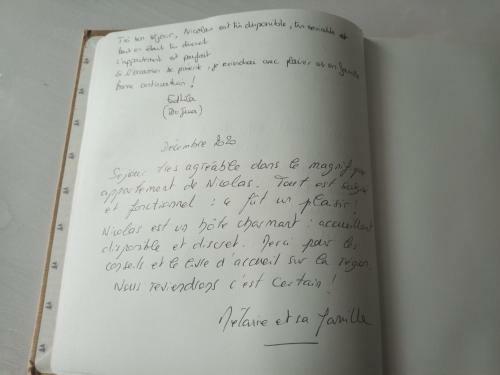 Très bon séjour, Nicolas est très disponible, très serviable et
tout en étant très discret
L'appartement est parfait
Si l'occasion se présente, je reviendrai avec plaisir et en famille
Bonne continuation !
Décembre 2020
Séjour très agréable dans le magnifique
appartement de Nicolas. Tout est soigné
et fonctionnel : ce fût un plaisir !
Nicolas est un hôte charmant : accueillant
disponible et discret. Merci pour les
conseils et le livre d'accueil sur la région.
Nous reviendrons c'est certain !
et sa famille